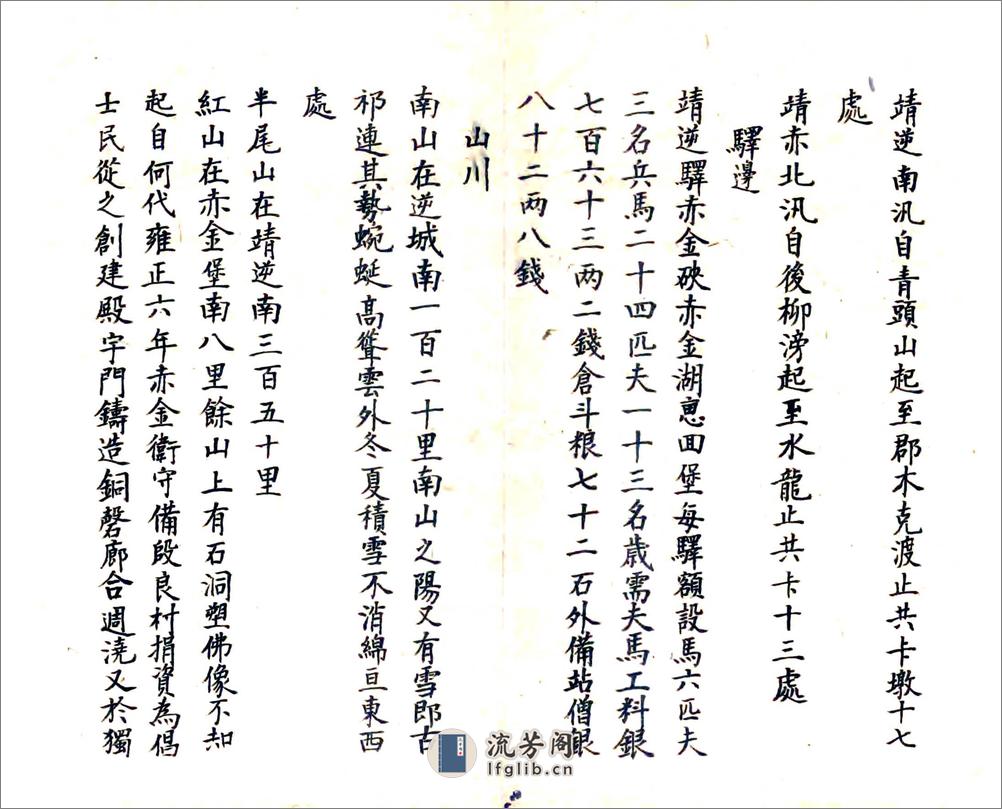 靖逆南汛自青頭山起至郡木克渡止共卡墩十七
處
靖赤北汛自後柳滂起至水龍止共卡十三處
驛邊
靖逆驛赤金硤赤金湖惠回堡每驛額設馬六匹夫
三名兵馬二十四匹夫一十三名歲需夫馬工料銀
七百六十三两二錢倉斗粮七十二石外備站僧銀
八十二两八錢
山川
南山在逆城南一百二十里南山之陽又有雪郎古
祁連其勢蜿蜒高聳雲外冬夏積雪不消綿亘東西
處
半尾山在靖逆南三百五十里
紅山在赤金堡南八里餘山上有石洞塑佛像不知
起自何代雍正六年赤金衛守備段良村捐資為倡
士民從之創建殿宇門鑄造銅磬廊合週澆又於獨
流芳阁
lfglib.cn